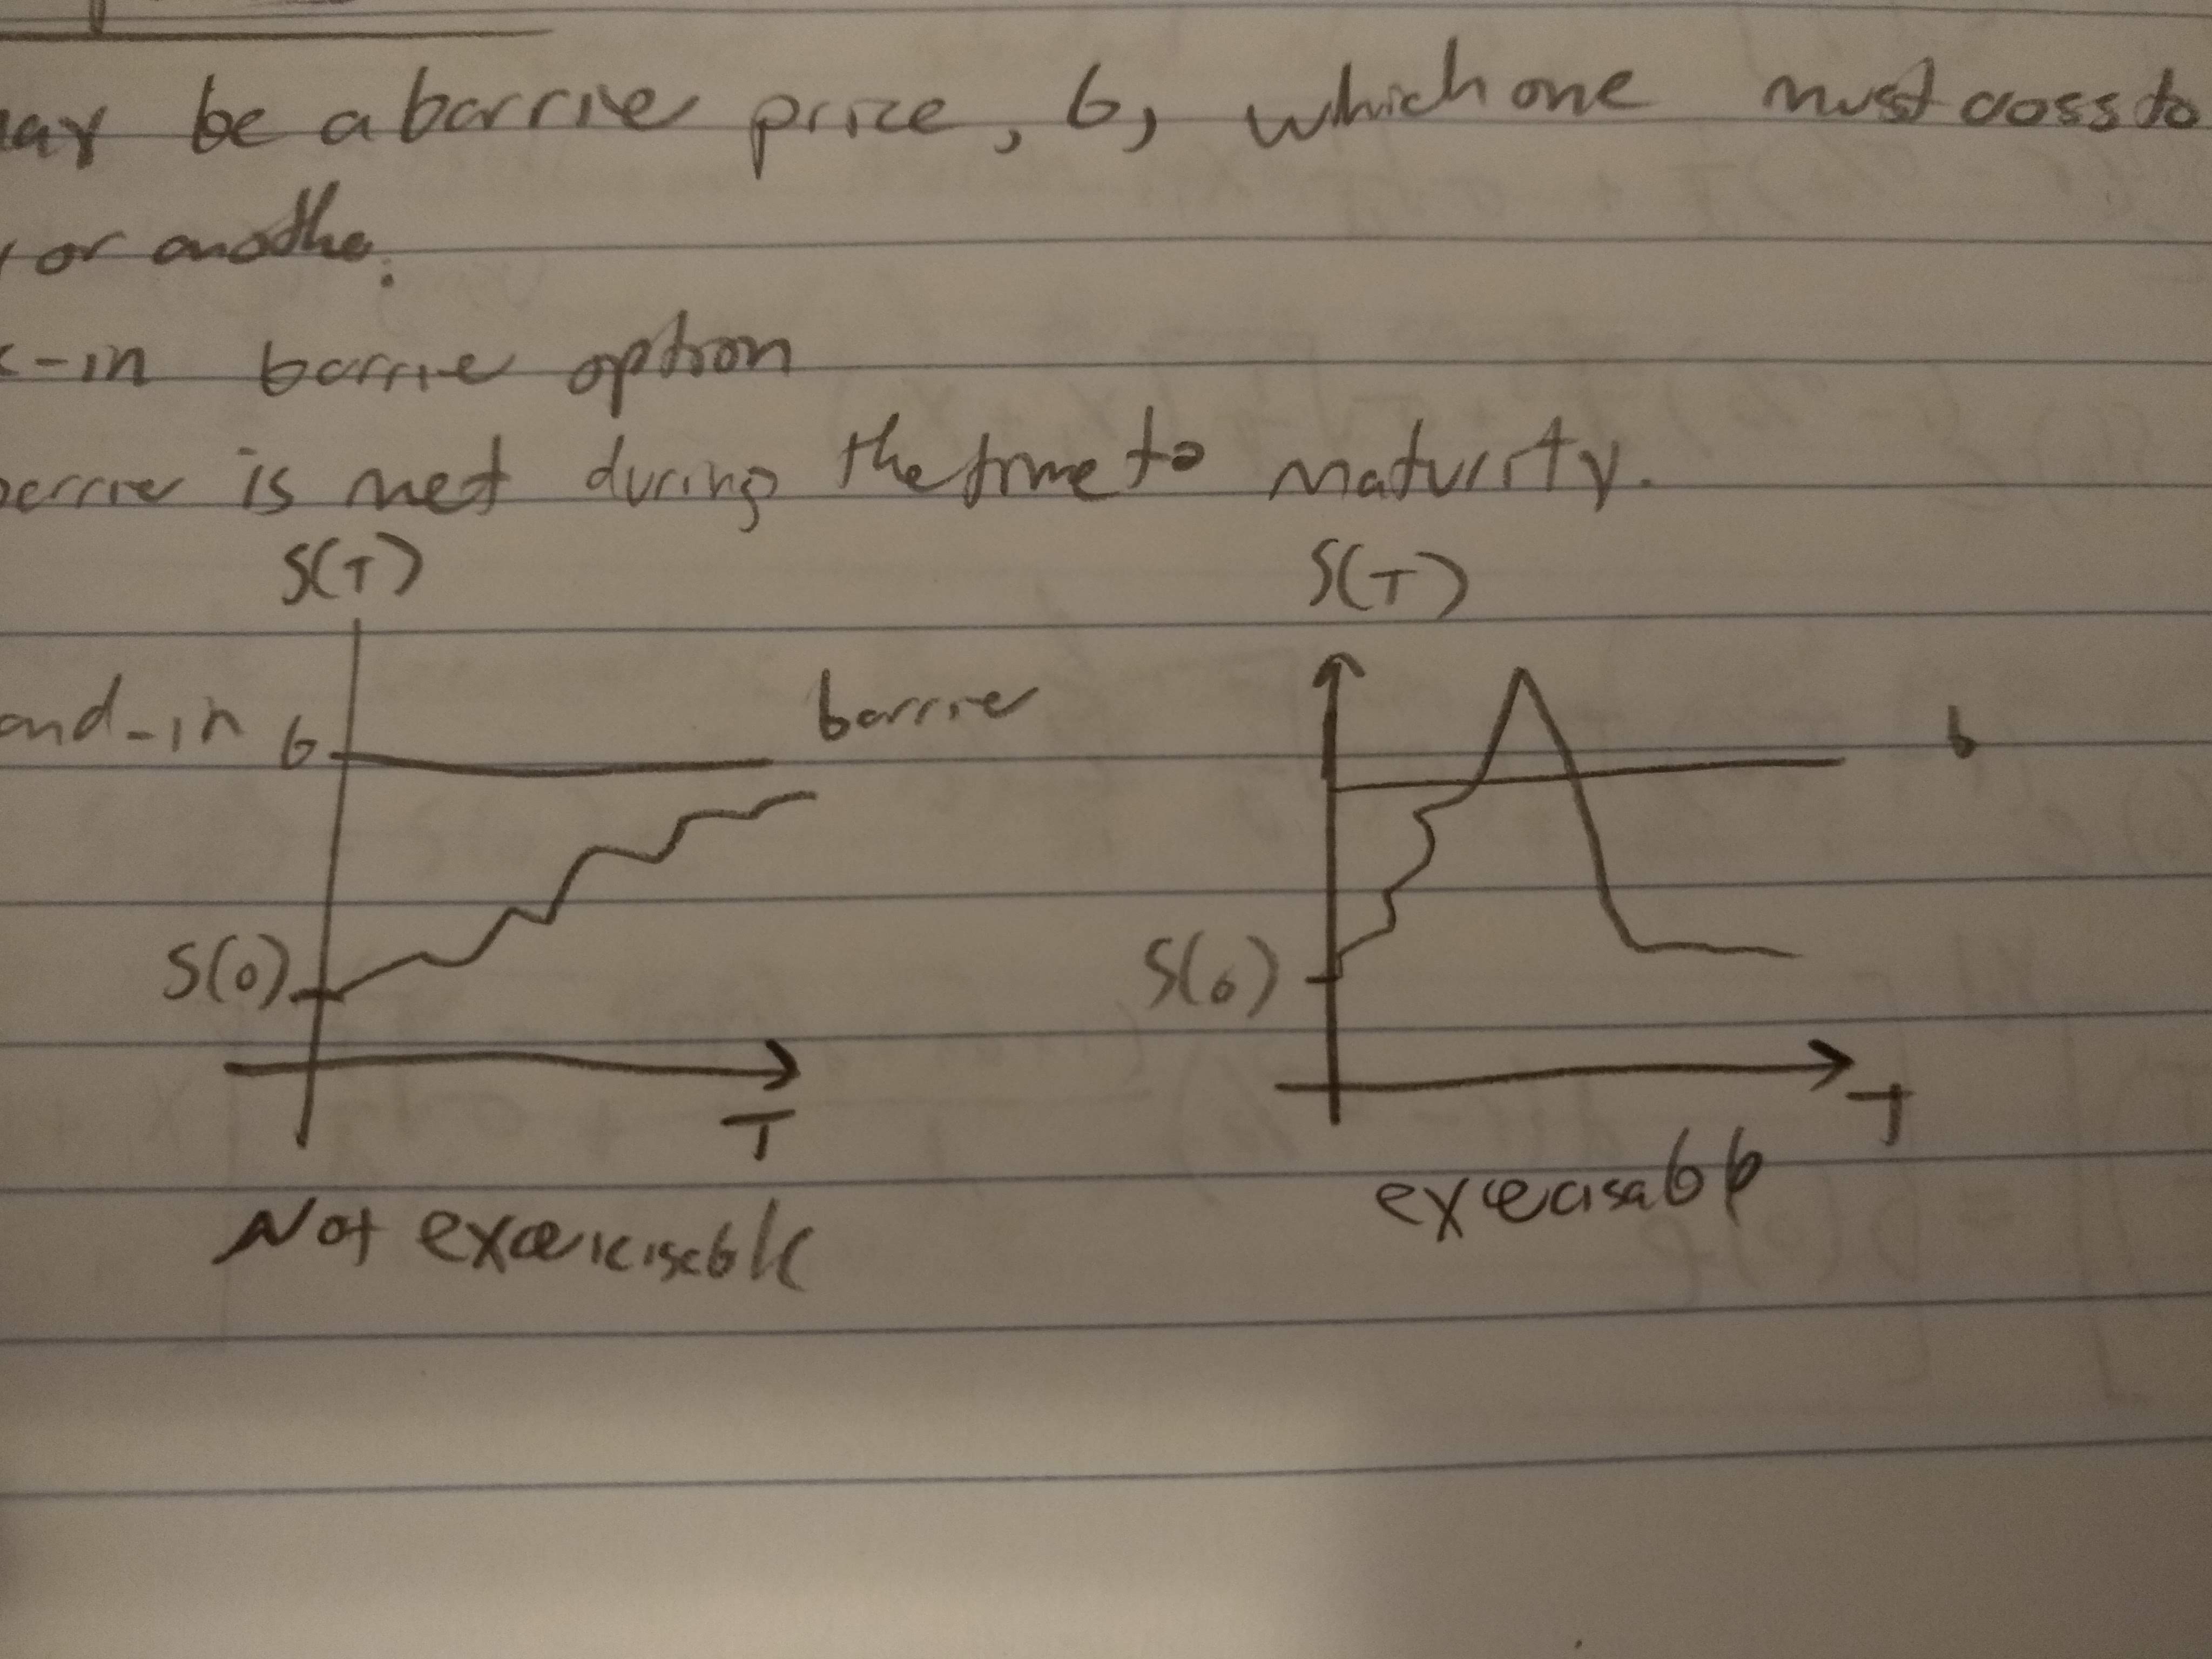 may be a barrier price, b, which one must cross to
or another.
-in barrier option
barrier is met during the time to maturity.
S(T) S(T)
and-in b barrier b
S(0) S(0)
T T
Not exercisable exercisable